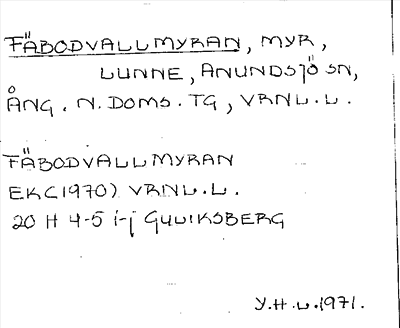 FÄBODVALLMYRAN, MYR,
LUNNE, ANUNDSJÖ SN,
ÅNG. N. DOMS. TG, VRNL.L.
FÄBODVALLMYRAN
EK(1970) VRNL.L.
20 H 4-5 i-j GULIKSBERG
Y.H.L.1971.